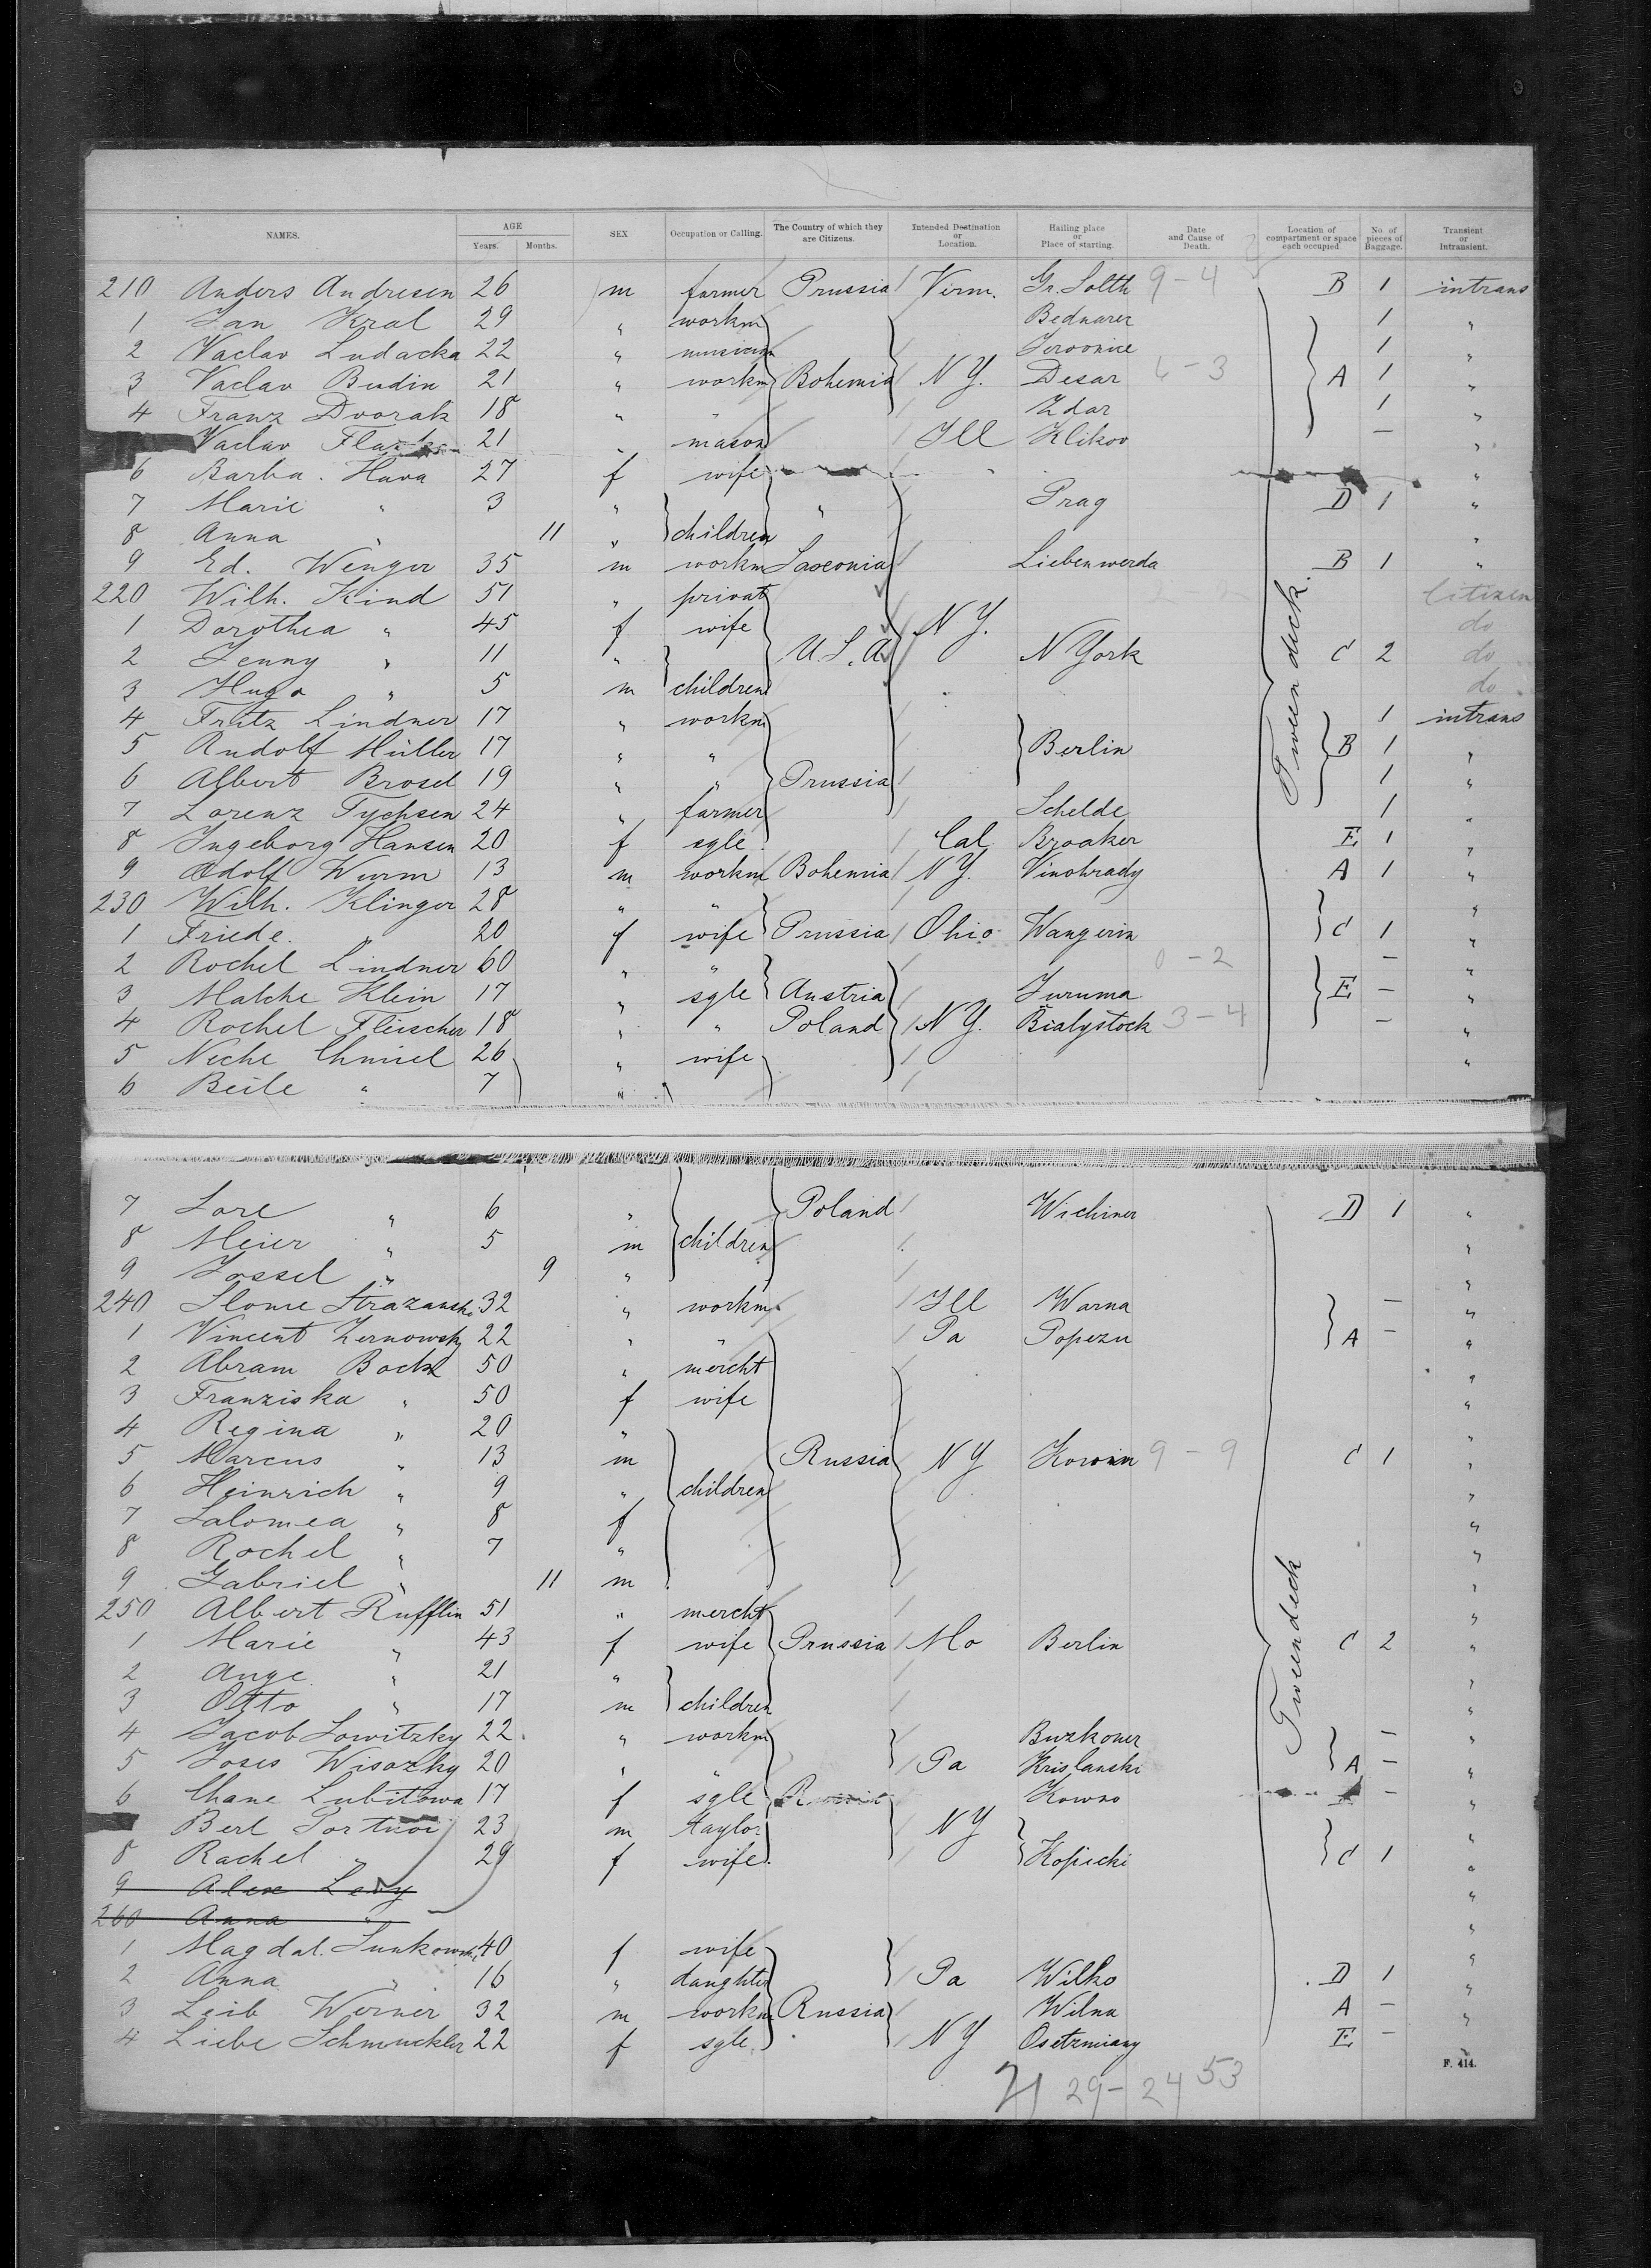 NAMES. AGE SEX Occupation or Calling. The Country of which they are Citizens. Intended Destination or Location. Hailing place or Place of starting. Date and Cause of Death. Location of compartment or space each occupied No. of pieces of Baggage. Transient or Intransient.
Years. Months.
210 Anders Andresen 26 m farmer Prussia Verm. Gr. Solth 9 - 4 B 1 intrans
1 Jan Kral 29 " workm Bednarer 1 "
2 Vaclav Ludacka 22 " musician 1 "
3 Vaclav Budin 21 " workm Bohemia N Y. Desar 6 - 3 A 1 "
4 Franz Dvorak 18 " " Zdar 1 "
Vaclav 21 " mason Ill Klikov — "
6 Barba. Hava 27 f wife "
7 Marie " 3 " " Prag D 1 "
8 Anna " 11 " children "
9 Ed. Wenger 35 m workm Saxonia Liebenwerda B 1 "
220 Wilh. Kind 51 " privat Citizen
1 Dorothea " 45 f wife N Y. do
2 Jenny " 11 " U. S. A N York C 2 do
3 Hugo " 5 m children do
4 Fritz Lindner 17 " workm 1 intrans
5 Rudolf Müller 17 " " Berlin B 1 "
6 Albert Brosel 19 " " Prussia 1 "
7 Lorenz Tychsen 24 " farmer Schelde 1 "
8 Ingeborg Hansen 20 f sgle. Cal Broaker E 1 "
9 Adolf Wurm 13 m workm Bohemia N Y. Vinohrady A 1 "
230 Wilh. Klinger 28 " " "
1 Friede. " 20 f wife Prussia Ohio Wangerin C 1 "
2 Rochel Lindner 60 " " 0 - 2 — "
3 Malche Klein 17 " sgle Austria Juruma E — "
4 Rochel Fleischer 18 " " Poland N Y. Bialystock 3 - 4 — "
5 Neche Chmiel 26 " wife "
6 Beile " 7 "
Tweendeck.
7 Sore " 6 " Poland Wichiner D 1 "
8 Meier " 5 m children "
9 Jossel " 9 " "
240 Slome 32 " workm. Ill Warna — "
1 Vincent Zernowsky 22 " " Pa Popezu A — "
2 Abram Bock 50 " mercht "
3 Franziska " 50 f wife "
4 Regina " 20 " "
5 Marcus " 13 m Russia N Y 9 - 9 C 1 "
6 Heinrich " 9 " children "
7 Salomea " 8 f "
8 Rochel " 7 " "
9 Gabriel " 11 m "
250 Albert Rufflin 51 " mercht "
1 Marie " 43 f wife Prussia Mo Berlin C 2 "
2 Ange " 21 " "
3 Otto " 17 m children "
4 Jacob Lowitzky 22 " workm Buzkoner — "
5 Joses Wisozky 20 " " Pa Krislanski A — "
6 Chane Lubitowa 17 f sgle Kowno — "
Berl Portnoi 23 m taylor N Y "
8 Rachel " 29 f wife. Kopicki C 1 "
9 Alex Levy "
260 Anna " "
1 Magdal. 40 f wife "
2 Anna " 16 " daughter Pa Wilko D 1 "
3 Leib Werner 32 m workm Russia Wilna A — "
4 Liebe Schmuckler 22 f sgle. N Y Osetzmiany E — "
Tweendeck
F. 414.
29 - 24 53